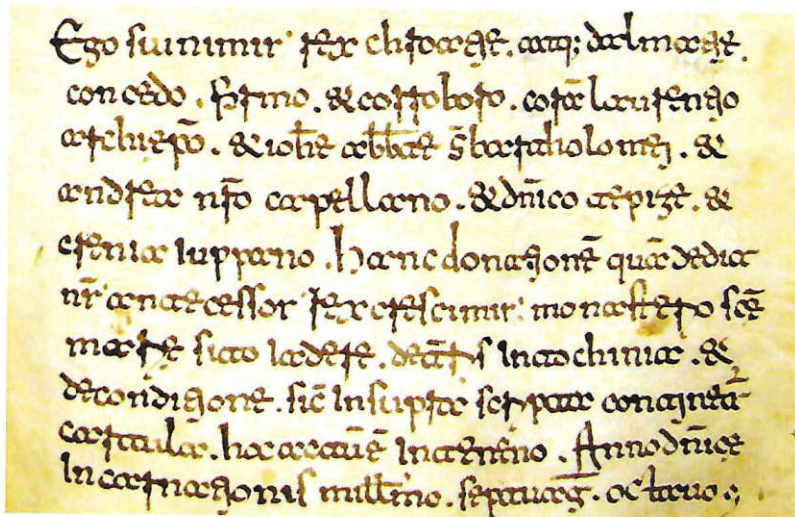 Ego suinimir rex chroatię. atq; dalmatię.
concedo. firmo. & corroboro. corā laurentio
archiepō. & iohē abbatē s̄ bartholomei. &
andrea nr̄o capellano. & dn̄ico tepizę. &
iuppano. hanc donationē quā
nr̄ antecessor rex crescimir. monasterio scę
marię sito iadere. de terris in tochinia. &
de conditione. sic̄ in supra scripta continetur
cartula. hoc actū ē in teneno. Anno dn̄icę
Incarnationis millmo. septuaḡ. octauo.